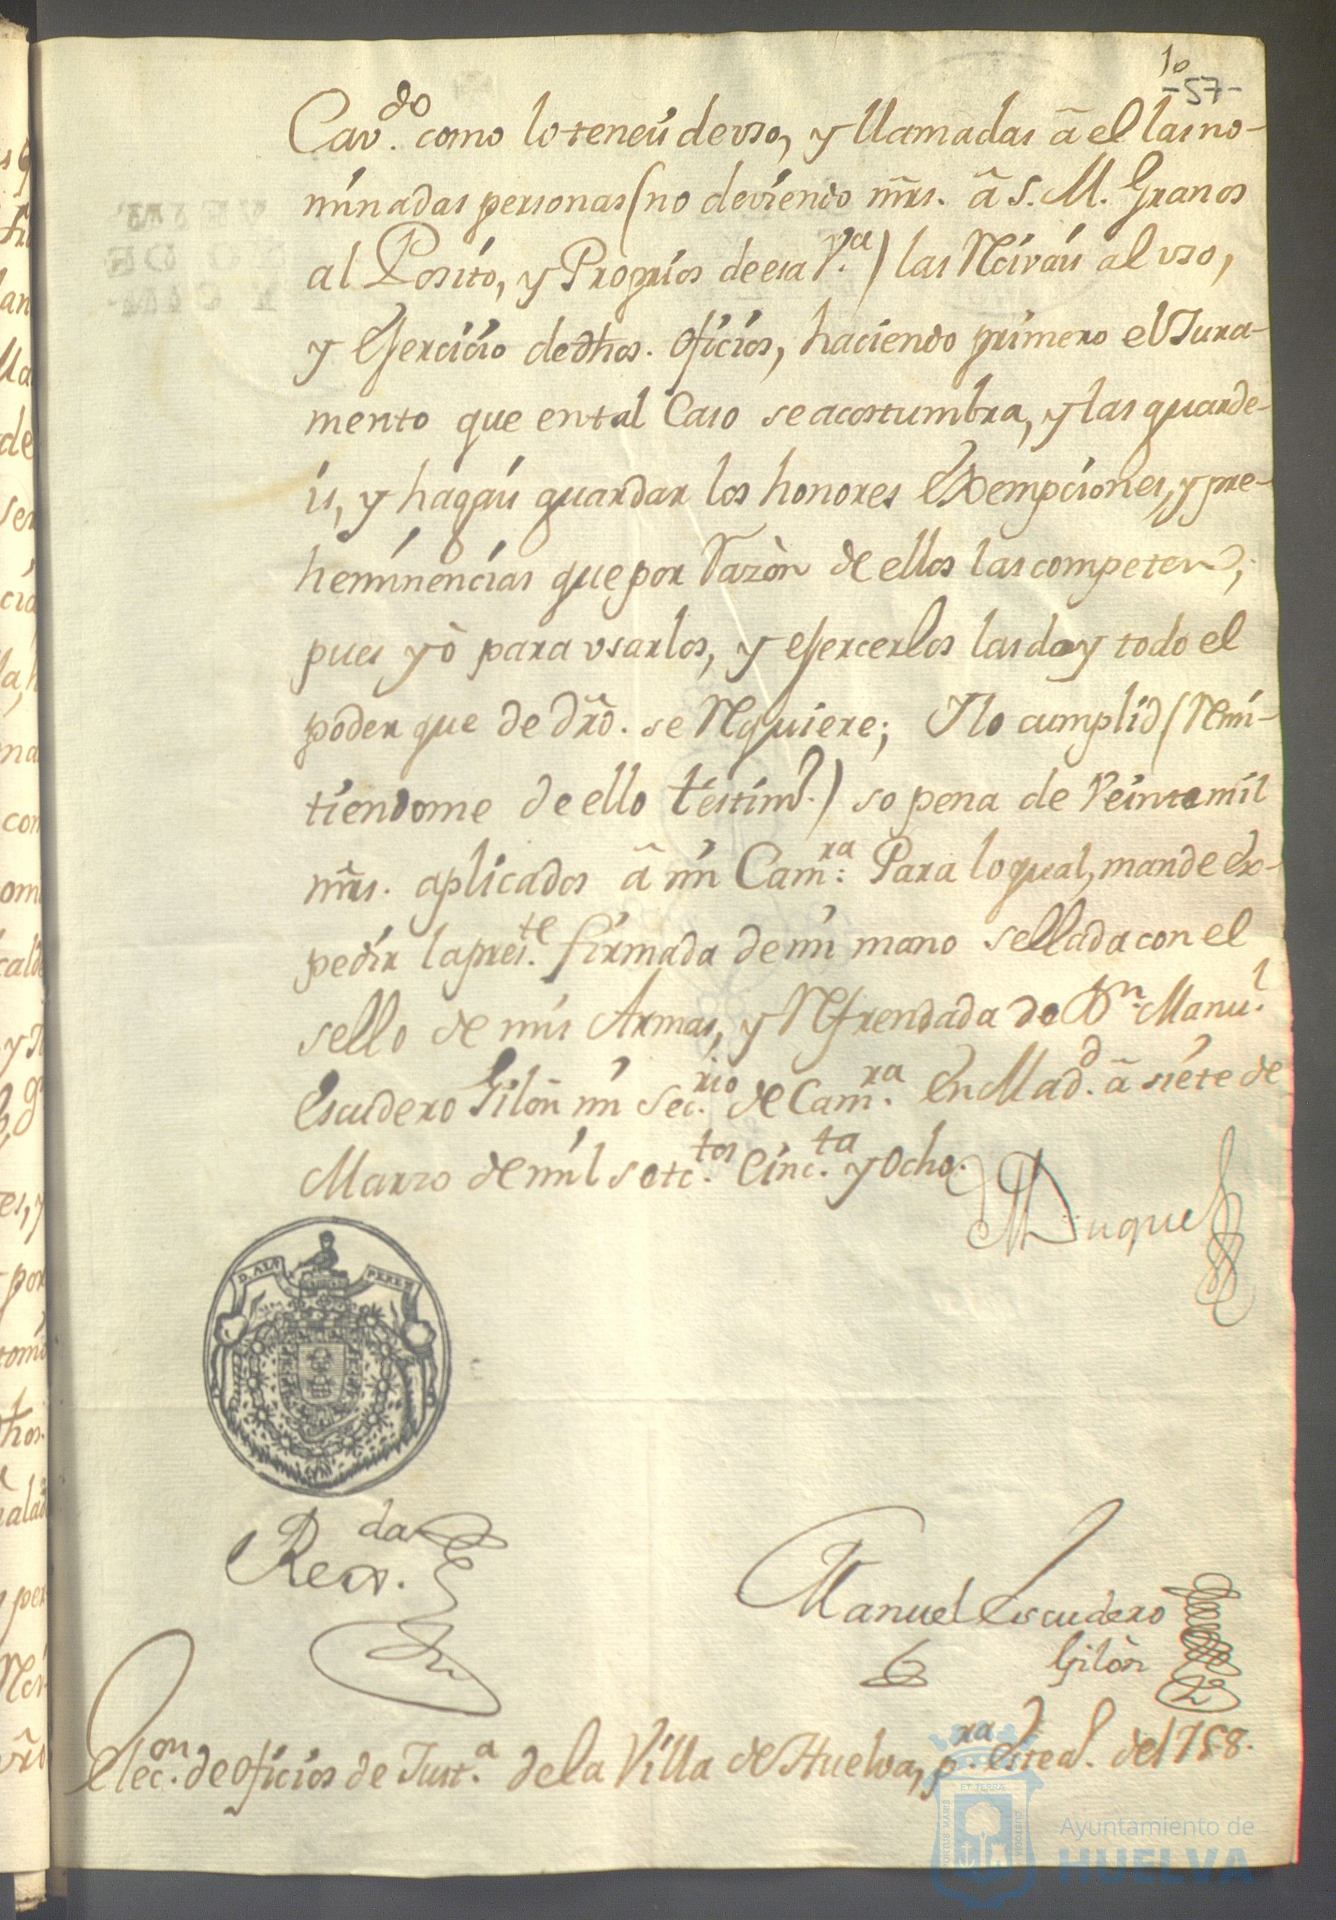 10
-57-
Cav.do como lo teneis de vso, y llamadas â el las no-
minadas personas (no deviendo mrs. â S. M. Granos
al Posito, y Proprios de esa V.a) las Rcivais al vso,
y Ejercicio de dhos. oficios, haciendo primero el Jura-
mento que en tal Caso se acostumbra, y las guarde-
is, y hagais guardar los honores Exempciones, y pre-
heminencias que por Razòn de ellos las competen,
pues yò para vsarlos, y ejercerlos las doy todo el
poder que de dro. se Rquiere; Y lo cumplid (Remi-
tiendome de ello testim.o) so pena de Veinte mil
mrs. aplicados â mi Cam.ra Para lo qual, mande ex-
pedir la pres.te firmada de mi mano sellada con el
sello de mis Armas, y Rfrendada de Dn. Manu.l
Escudero Gilòn mi Sec.rio de Cam.ra En Mad.d â siete de
Marzo de mil setc.tos Cinc.ta y Ocho.
El Duque
D. ALº PEREZ
Rex.da
Manuel Escudero
Gilòn
Elec.on de oficios de Just.a de la Villa de Huelva, p.ra este a.l de 1758.
ET TERRÆ
PORTUS MARIS
CUSTODIA
Ayuntamiento de
HUELVA